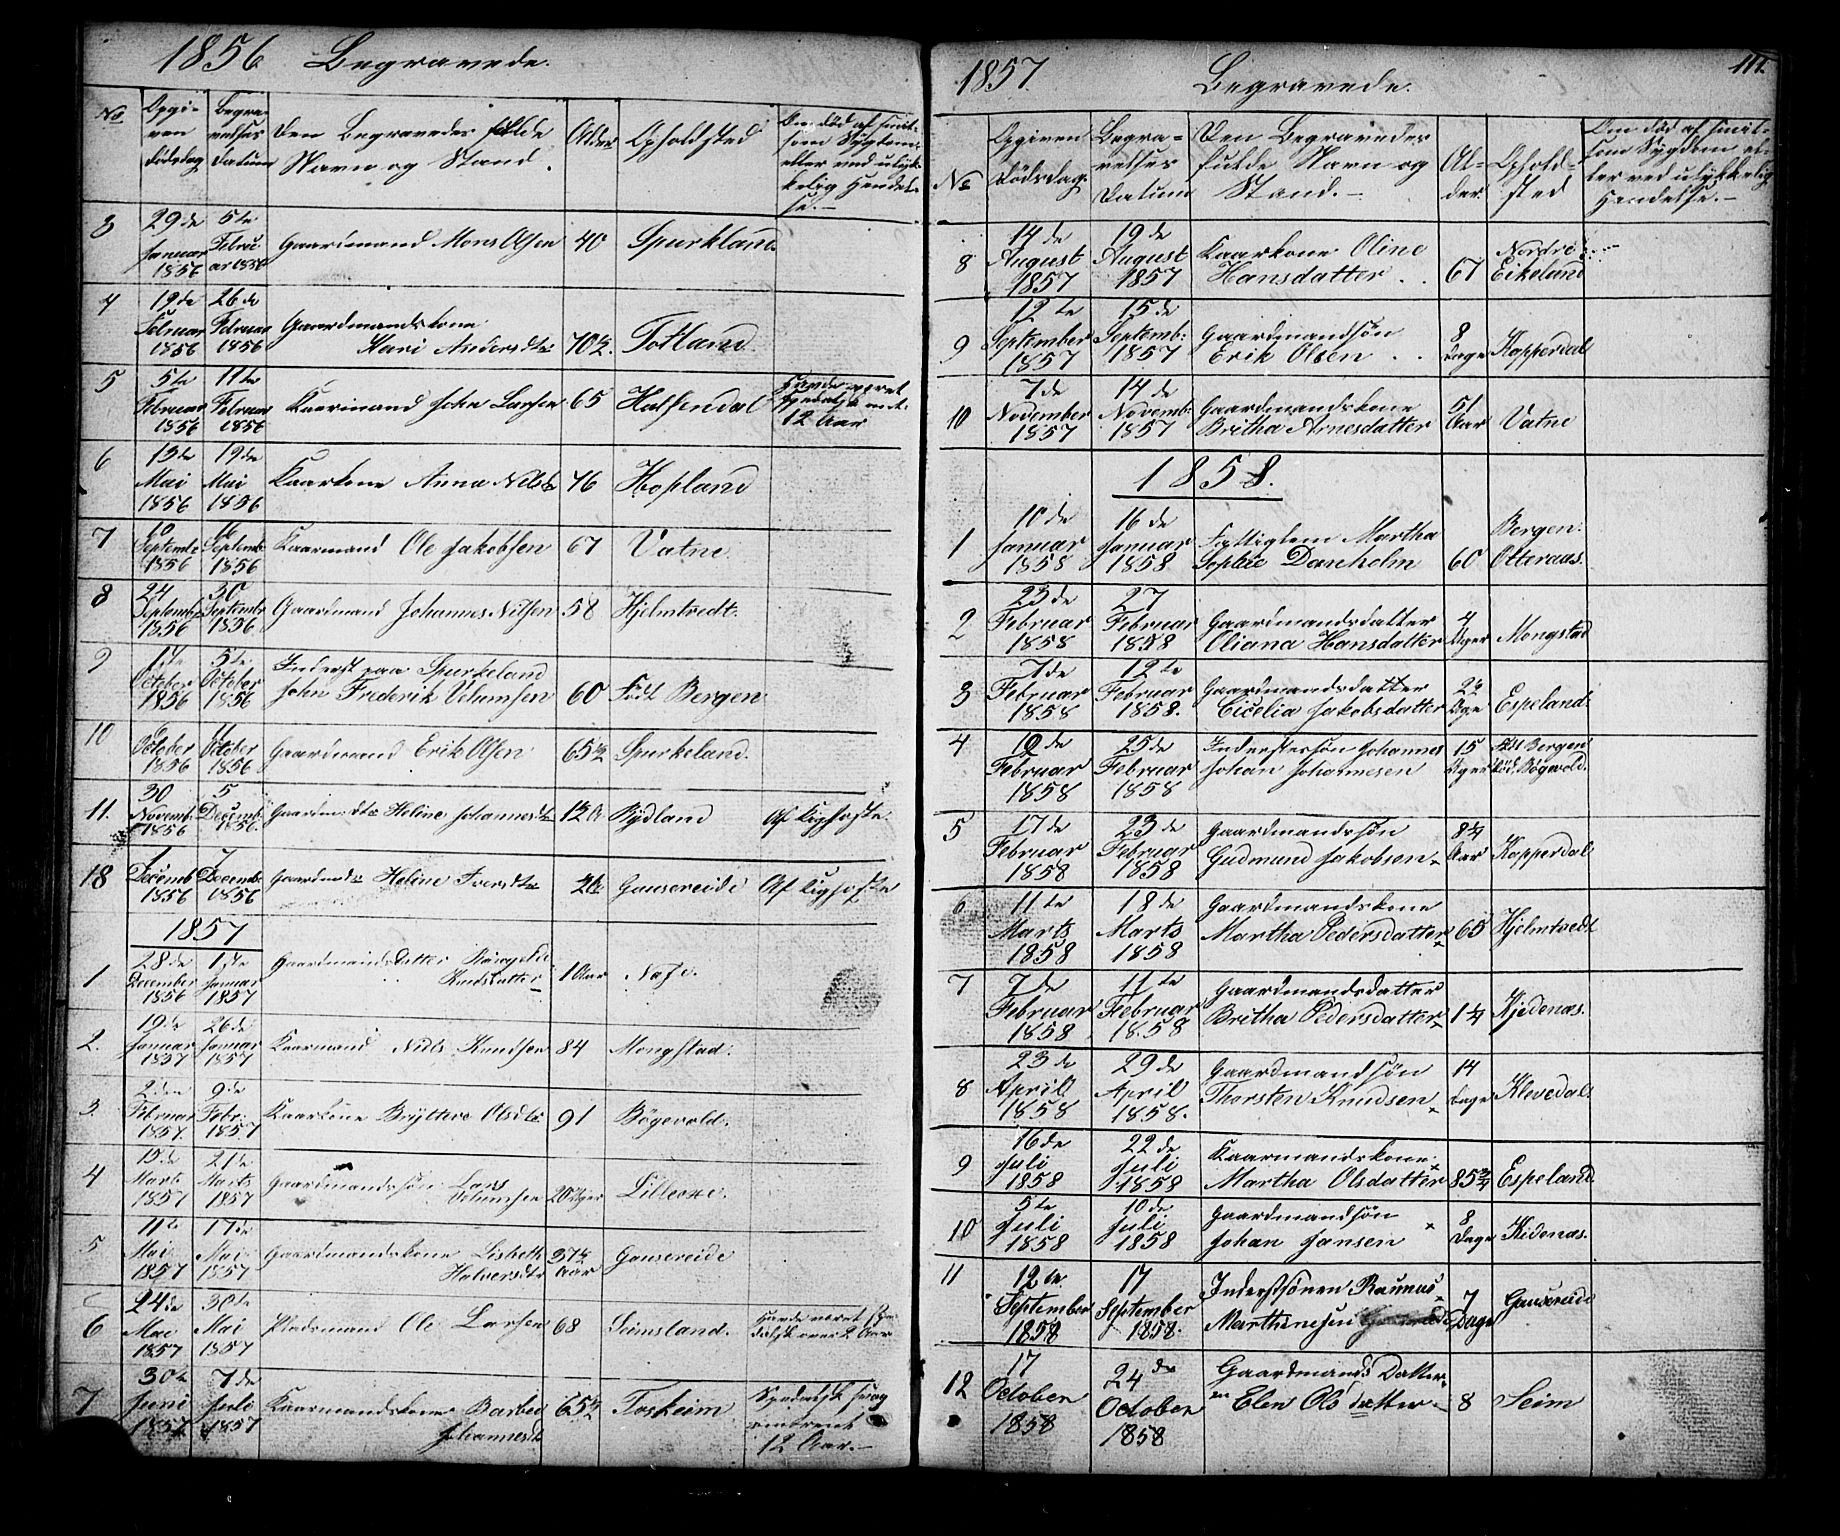 1856 Begravede.
No
Opgi-
ven
Dødsdag
Begra-
velses
Datum
Den Begravedes fulde
Navn og Stand.
Alder
Opholdsted
Om død af smit-
som Sygdom
eller ved ulyk-
kelig Hendel-
se.-
3
29de
Januar
1856
5te
Febru-
ar 1856
Gaardmand Mons Olsen
40
Spurkland
4
19de
Februar
1856
26de
Februar
1856
Gaardmandskone
Kari Andersdtr
70½.
Totland
5
5te
Februar
1856
11te
Februar
1856
Kaarmand John Larsen
65
Halsendal
Havde været
Spedalsk omt.
12 Aar
6
13de
Mai
1856
19de
Mai
1856
Kaarkone Anna Nilsd
76
Hopland
7
10
Septembr
1856
16
Septembr
1856
Kaarmand Ole Jakobsen
67
Vatne
8
24
Septembr
1856
30
Septembr
1856
Gaardmand Johannes Nilsen
58
Hjelmtvedt.
9
1ste
October
1856
5te
October
1856
Inderst paa Spurkeland
John Frederik Villumsen
60
Født Bergen
10
6
October
1856
11
October
1856
Gaardmand Erik Olsen
65½
Spurkeland.
11.
30
Novemb:
1856
5
Decemb:
1856.
Gaardmdtr Heline Johannesdtr
12 A
Rydland
Af Kighoste.
18
1
Decemb
1856
7
Decemb:
1856
Gaardmds Heline Iversdtr
Gausereide
Af Kighoste
1857
1
28de
December
1856
1ste
Januar
1857
Gaardmands Datter
Knudsdatter
1 Aar
2.
19de
Januar
1857
26de
Januar
1857
Kaarmand Nils Knudsen
84
Mongstad.
3.
2den
Februar
1857.
9de
Febr:
1857
Kaarkone Brytteve Olsdtr
91
Bøgevold.
4
15de
Marts
1857
21te
Marts
1857
Gaardmandssøn Lars
Villumsen
20 Uger
5
11te
Mai
1857
17de
Mai
1857
Gaardmandskone Lisbeth
Halversdtr
37½
Aar
Gausereide
6
24de
Mai
1857
30te
Mai
1857
Pladsmand Ole Larsen
68
Seimsland.
Havde været Spe-
dalsk over 2 Aar
7
30te
Juni
1857
7de
Juli
1857
Kaarmandskone Barbro
Johannesdt
65½
Toskeim
Spedalsk svag
omtrent
12 Aar.-
1857.
Begravede.
111.
No
Opgiven
Dødsdag.
Begra-
velses
Datum
Den Begravedes
fulde Navn og
Stand.-
Al-
der.
Ophold-
sted
Om død af smit-
som Sygdom el-
ler ved ulykkelig
Hendelse.-
8
14de
August
1857
19de
August
1857
Kaarkone Oline
Hansdatter . .
67
Nordre
Eikeland
9
12te
September
1857
15de
Septemb:
1857
Gaardmandsøn
Erik Olsen . .
8
Dage
Kopperdal
10
7de
November
1857
14de
Novemb:
1857
Gaardmandskone
Britha Arnesdatter
51
Aar
Vatne
1858.
1
10de
Januar
1858
16de
Januar
1858
Fattiglem Martha
Sophie Danholm
60
Bergen:
Otteraas.
2
23de
Februar
1858
27
Februar
1858
Gaardmandsdatter
Oliana Hansdatter
4
Uger
Mongstad
3
7de
Februar
1858
12te
Februar
1858.
Gaardmandsdatter
Cicelia Jakobsdatter
Uger
Espeland.
4
19de
Februar
1858
25de
Februar
1858
Inderstesøn Johannes
Johan Johannesen
15
Uger
Født Bergen
død. Bøgevold.
5
17de
Februar
1858
23de
Februar
1858
Gaardmandssøn
Gudmund Jakobsen
8¼
Aar
Kopperdal
6
11te
Marts
1858
18de
Marts
1858
Gaardmandskone
Martha Pedersdatter
65
Hjelmtvedt
7
7de
Februar
1858
11te
Februar
1858
Gaardmandsdatter
Britha Pedersdatter
1¼
Kjedenæs.
8
23de
April
1858
29de
April
1858.
Gaardmandsøn
Thorsten Knudsen
14
Dage
Klevedal.
9
16de
Juli
1858
22de
Juli
1858
Kaarmandskone
Martha Olsdatter
85¾
Espeland
10
5te
Juli
1858
10de
Juli
1858
Gaardmandsøn
Johan Jansen
8
Dage
Kidenæs.
11
12te
September
1858
17
September
1858.
Inderstsønen Rasmus
Marthinesen
7
Dage
Gausereide
12
17
October
1858
24de
October
1858
Gaardmands Datter
Elen Olsdatter
8
Seim